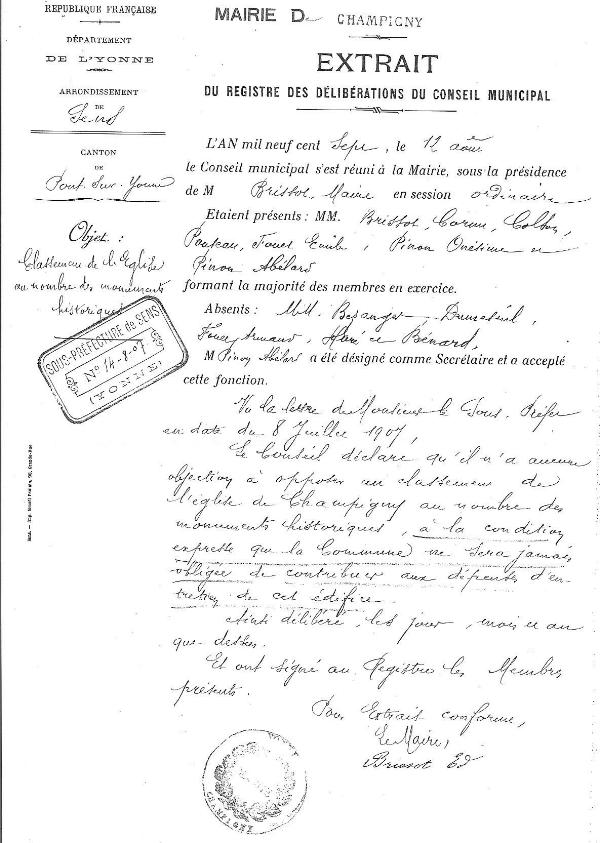 RÉPUBLIQUE FRANÇAISE
DÉPARTEMENT
DE L'YONNE
ARRONDISSEMENT
DE
Sens
CANTON
DE
Pont-Sur-Yonne
Objet :
Classement de l'Eglise
au nombre des monuments
historiques
SOUS-PRÉFECTURE de SENS
N° 14-8-07
(YONNE)
MAIRIE DE CHAMPIGNY
EXTRAIT
DU REGISTRE DES DÉLIBÉRATIONS DU CONSEIL MUNICIPAL
L'AN mil neuf cent Sept, le 12 août
le Conseil municipal s'est réuni à la Mairie, sous la présidence
de M Brissot, Maire en session ordinaire
Etaient présents : MM. Brissot,
Emile, Pinon Onésime et
Pinon Abélard
formant la majorité des membres en exercice.
Absents : MM. Bezanger
Armand, et Bénard,
M Pinon Abélard a été désigné comme Secrétaire et a accepté
cette fonction.
Vu la lettre de Monsieur le Sous-Préfet
en date du 8 Juillet 1907,
Le Conseil déclare qu'il n'a aucune
objection à opposer au classement de
l'église de Champigny au nombre des
monuments historiques, à la condition
expresse que la Commune ne sera jamais
obligée de contribuer aux dépenses d'en-
tretien de cet édifice.
Ainsi délibéré, les jour, mois et an
que dessus.
Et ont signé au Registre les Membres
présents.
Pour Extrait conforme,
Le Maire,
Brissot Ed
CHAMPIGNY